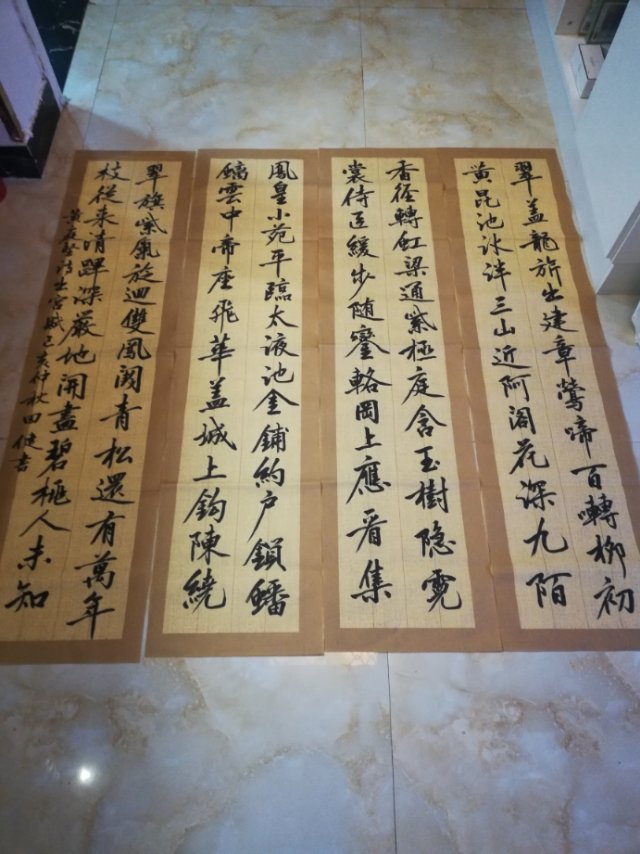 翠蓋龍旂出建章鶯啼百囀柳初
黄昆池冰泮三山近阿閣花深九陌
香徑轉虹梁通紫極庭含玉樹隐霓
裳侍臣緩步随鑾輅岡上應看集
鳳皇小苑平臨太液池金鋪約户鎖蟠
螭雲中帝座飛華蓋城上鈎陳繞
翠旗紫氣旋迴雙鳳闕青松還有萬年
枝從来清蹕深嚴地開盡碧桃人未知
黄庭堅詩出宮己亥仲秋田健書